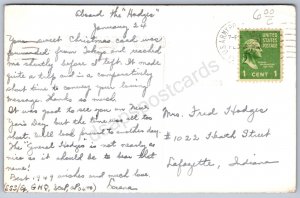 Aboard the "Hodges"
January 24
Your sweet Christmas card was
forwarded from Tokyo and reached
me shortly before I left. It made
quite a trip and in a comparatively
short time to convey your loving
message. Thanks so much.
It was good to see you on New
Year's Day but the time was all too
short. Will look forward to another day.
The "General Hodges" is not nearly as
nice as it should be to bear that
name!
Best 1949 wishes and much love,
ESS/G, GHQ, SCAP, APO
Mrs. Fred Hodges
#1022 Heath Street
Lafayette, Indiana
UNITED STATES POSTAGE
1 CENT 1
600